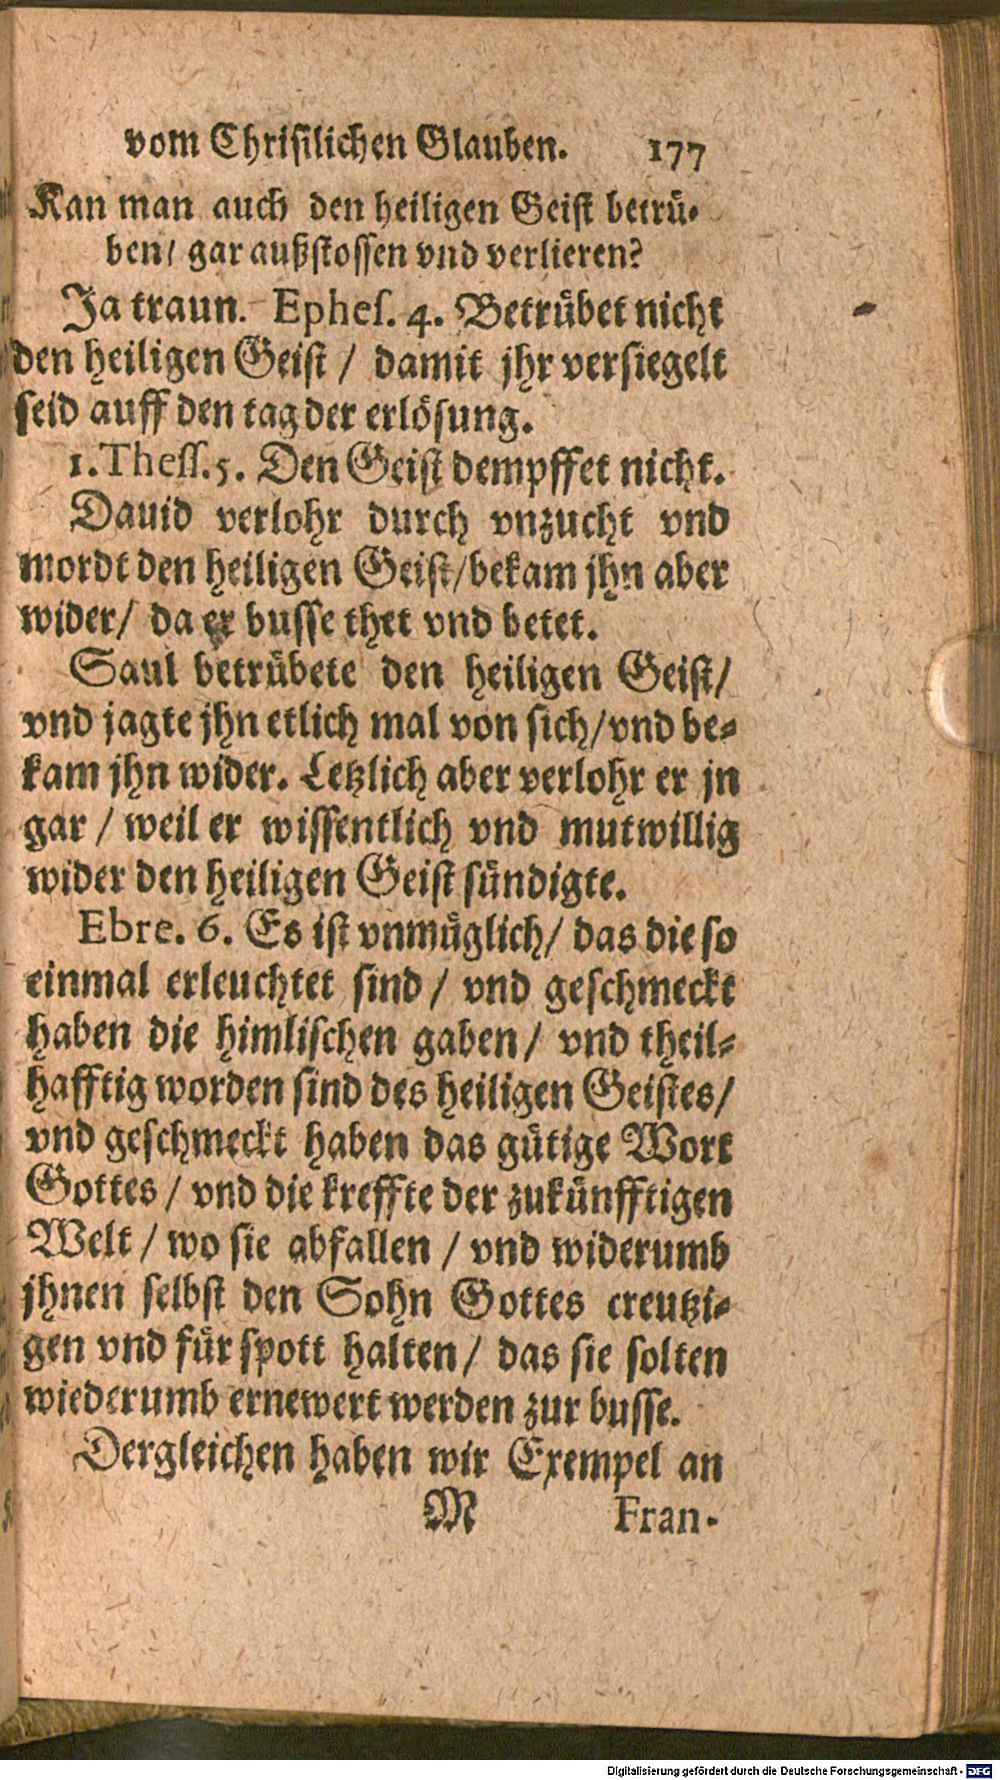 vom Christlichen Glauben. 177
Kan man auch den heiligen Geist betrü-
ben/ gar außstossen vnd verlieren?
Ja traun. Ephes. 4. Betrübet nicht
den heiligen Geist / damit jhr versiegelt
seid auff den tag der erlösung.
1. Thess. 5. Den Geist dempffet nicht.
Dauid verlohr durch vnzucht vnd
mordt den heiligen Geist/bekam jhn aber
wider/ da er busse thet vnd betet.
Saul betrübete den heiligen Geist/
vnd jagte jhn etlich mal von sich/vnd be-
kam jhn wider. Letzlich aber verlohr er jn
gar / weil er wissentlich vnd mutwillig
wider den heiligen Geist sündigte.
Ebre. 6. Es ist vnmüglich/ das die so
einmal erleuchtet sind / vnd geschmeckt
haben die himlischen gaben / vnd theil-
hafftig worden sind des heiligen Geistes/
vnd geschmeckt haben das gütige Wort
Gottes / vnd die kreffte der zukünfftigen
Welt / wo sie abfallen / vnd widerumb
jhnen selbst den Sohn Gottes creutzi-
gen vnd für spott halten / das sie solten
wiederumb ernewert werden zur busse.
Dergleichen haben wir Exempel an
M Fran-
Digitalisierung gefördert durch die Deutsche Forschungsgemeinschaft - DFG